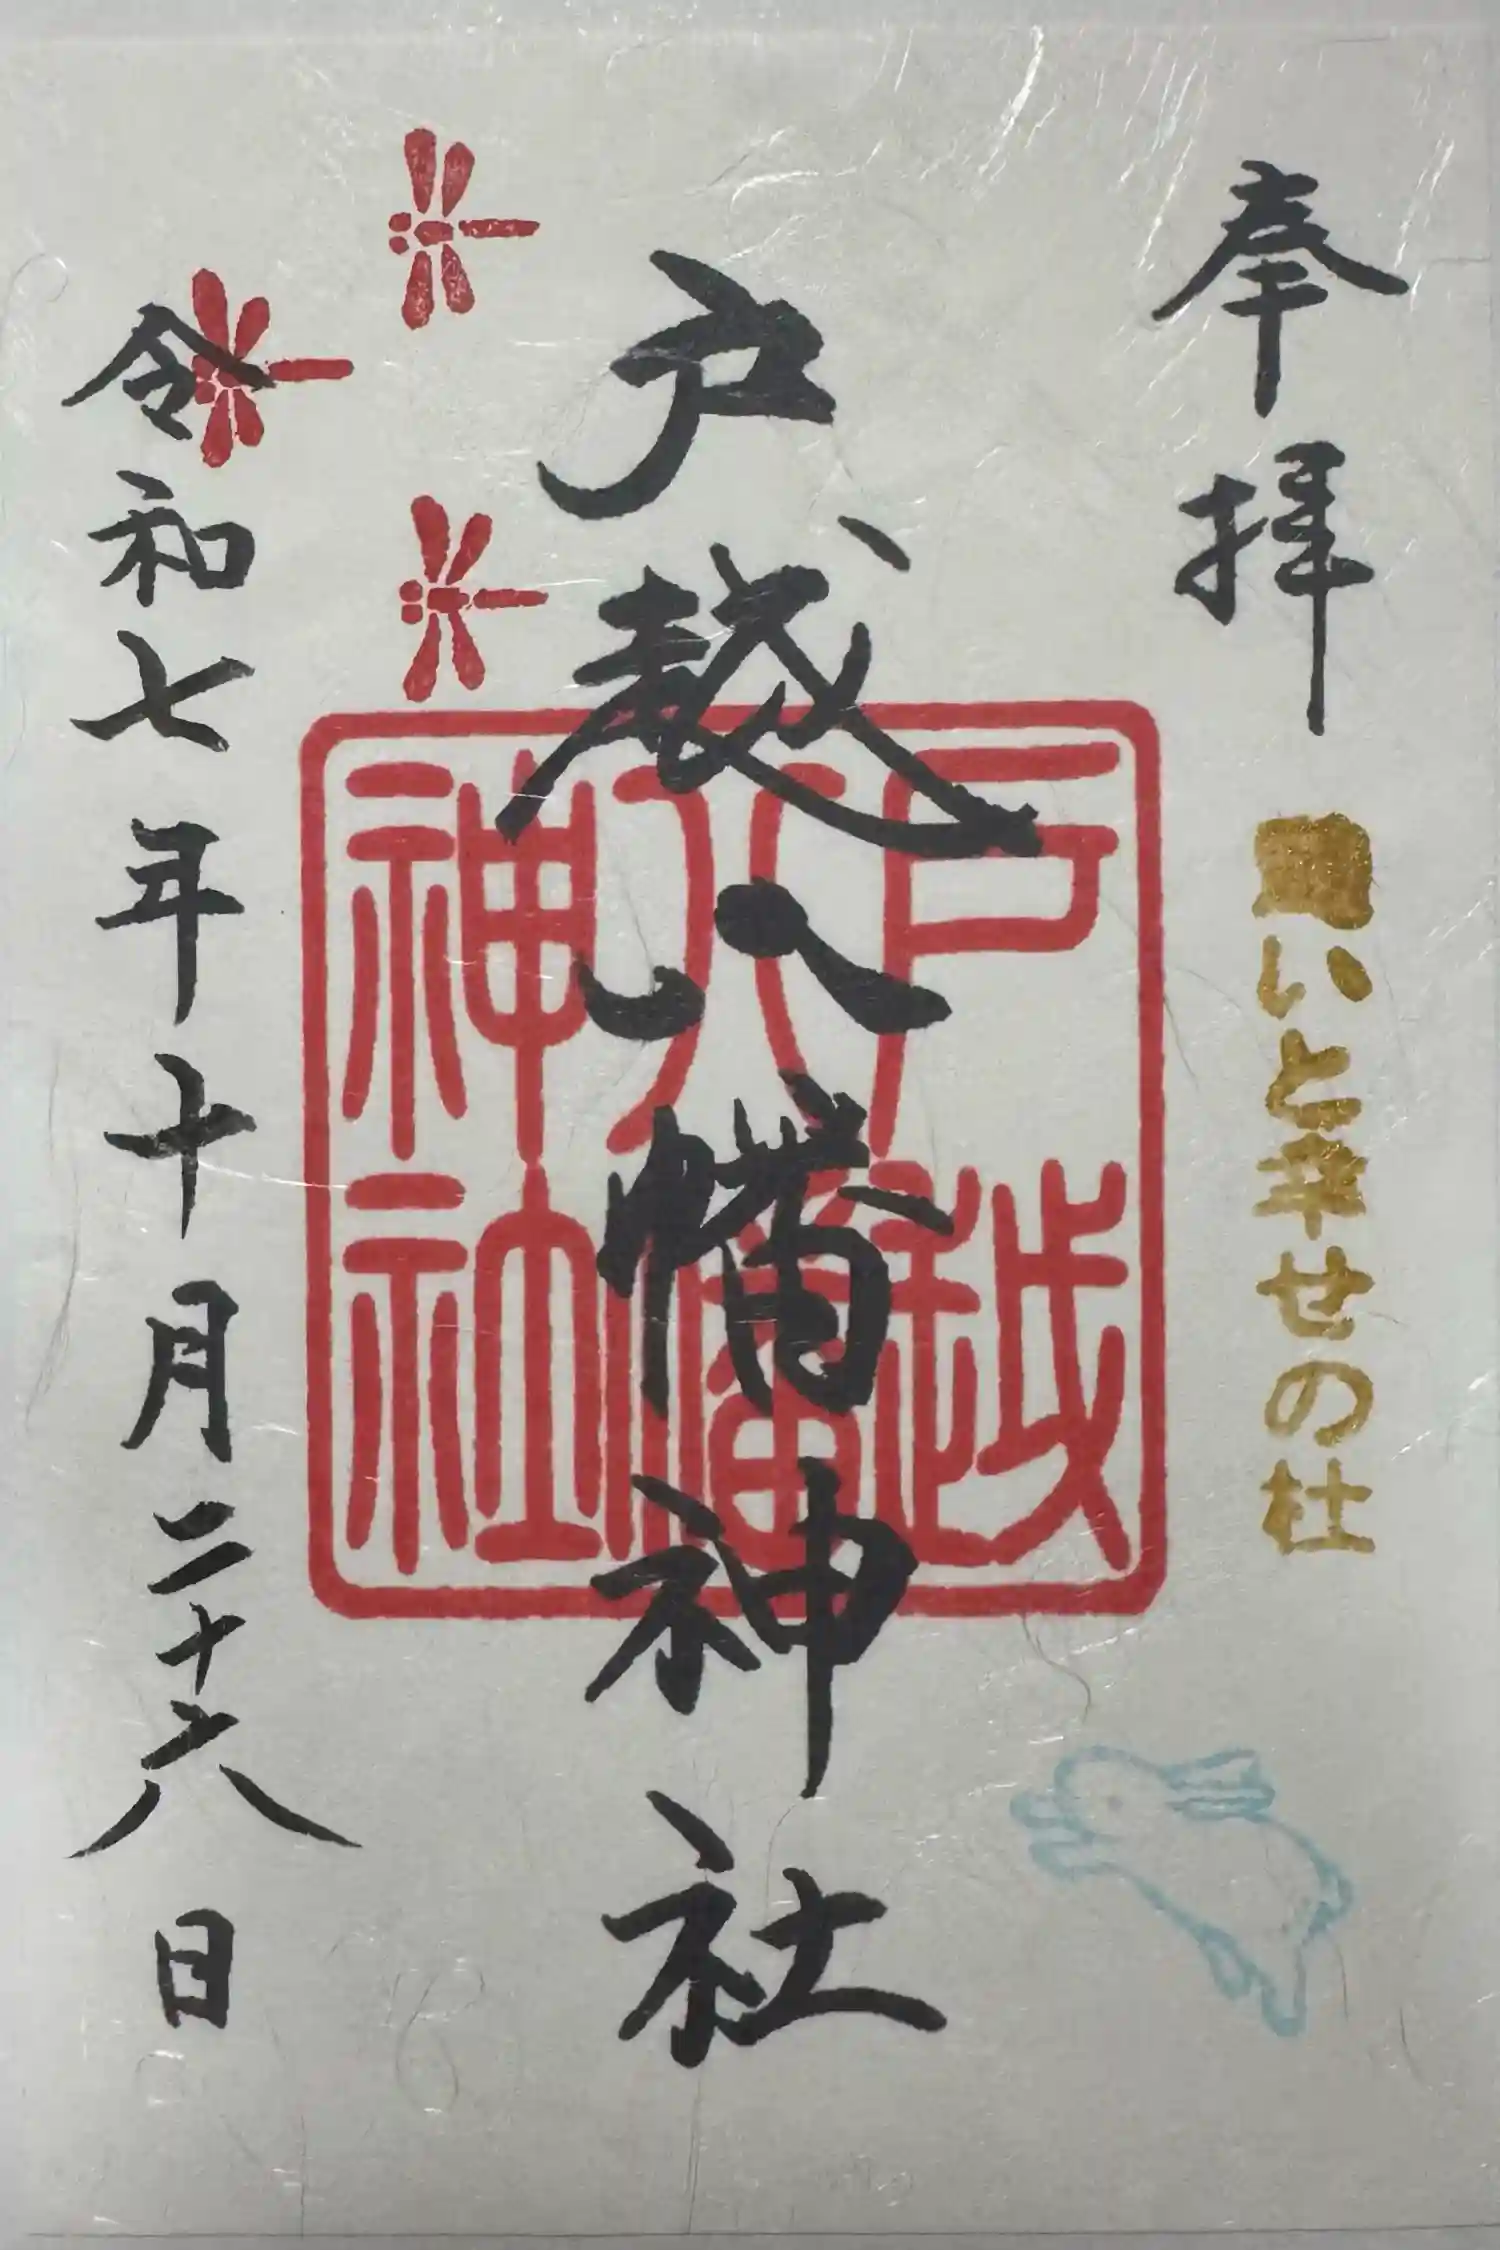 奉拝
願いと幸せの杜
戸越八幡神社
戸越
八幡
神社
令和七年十月二十六日